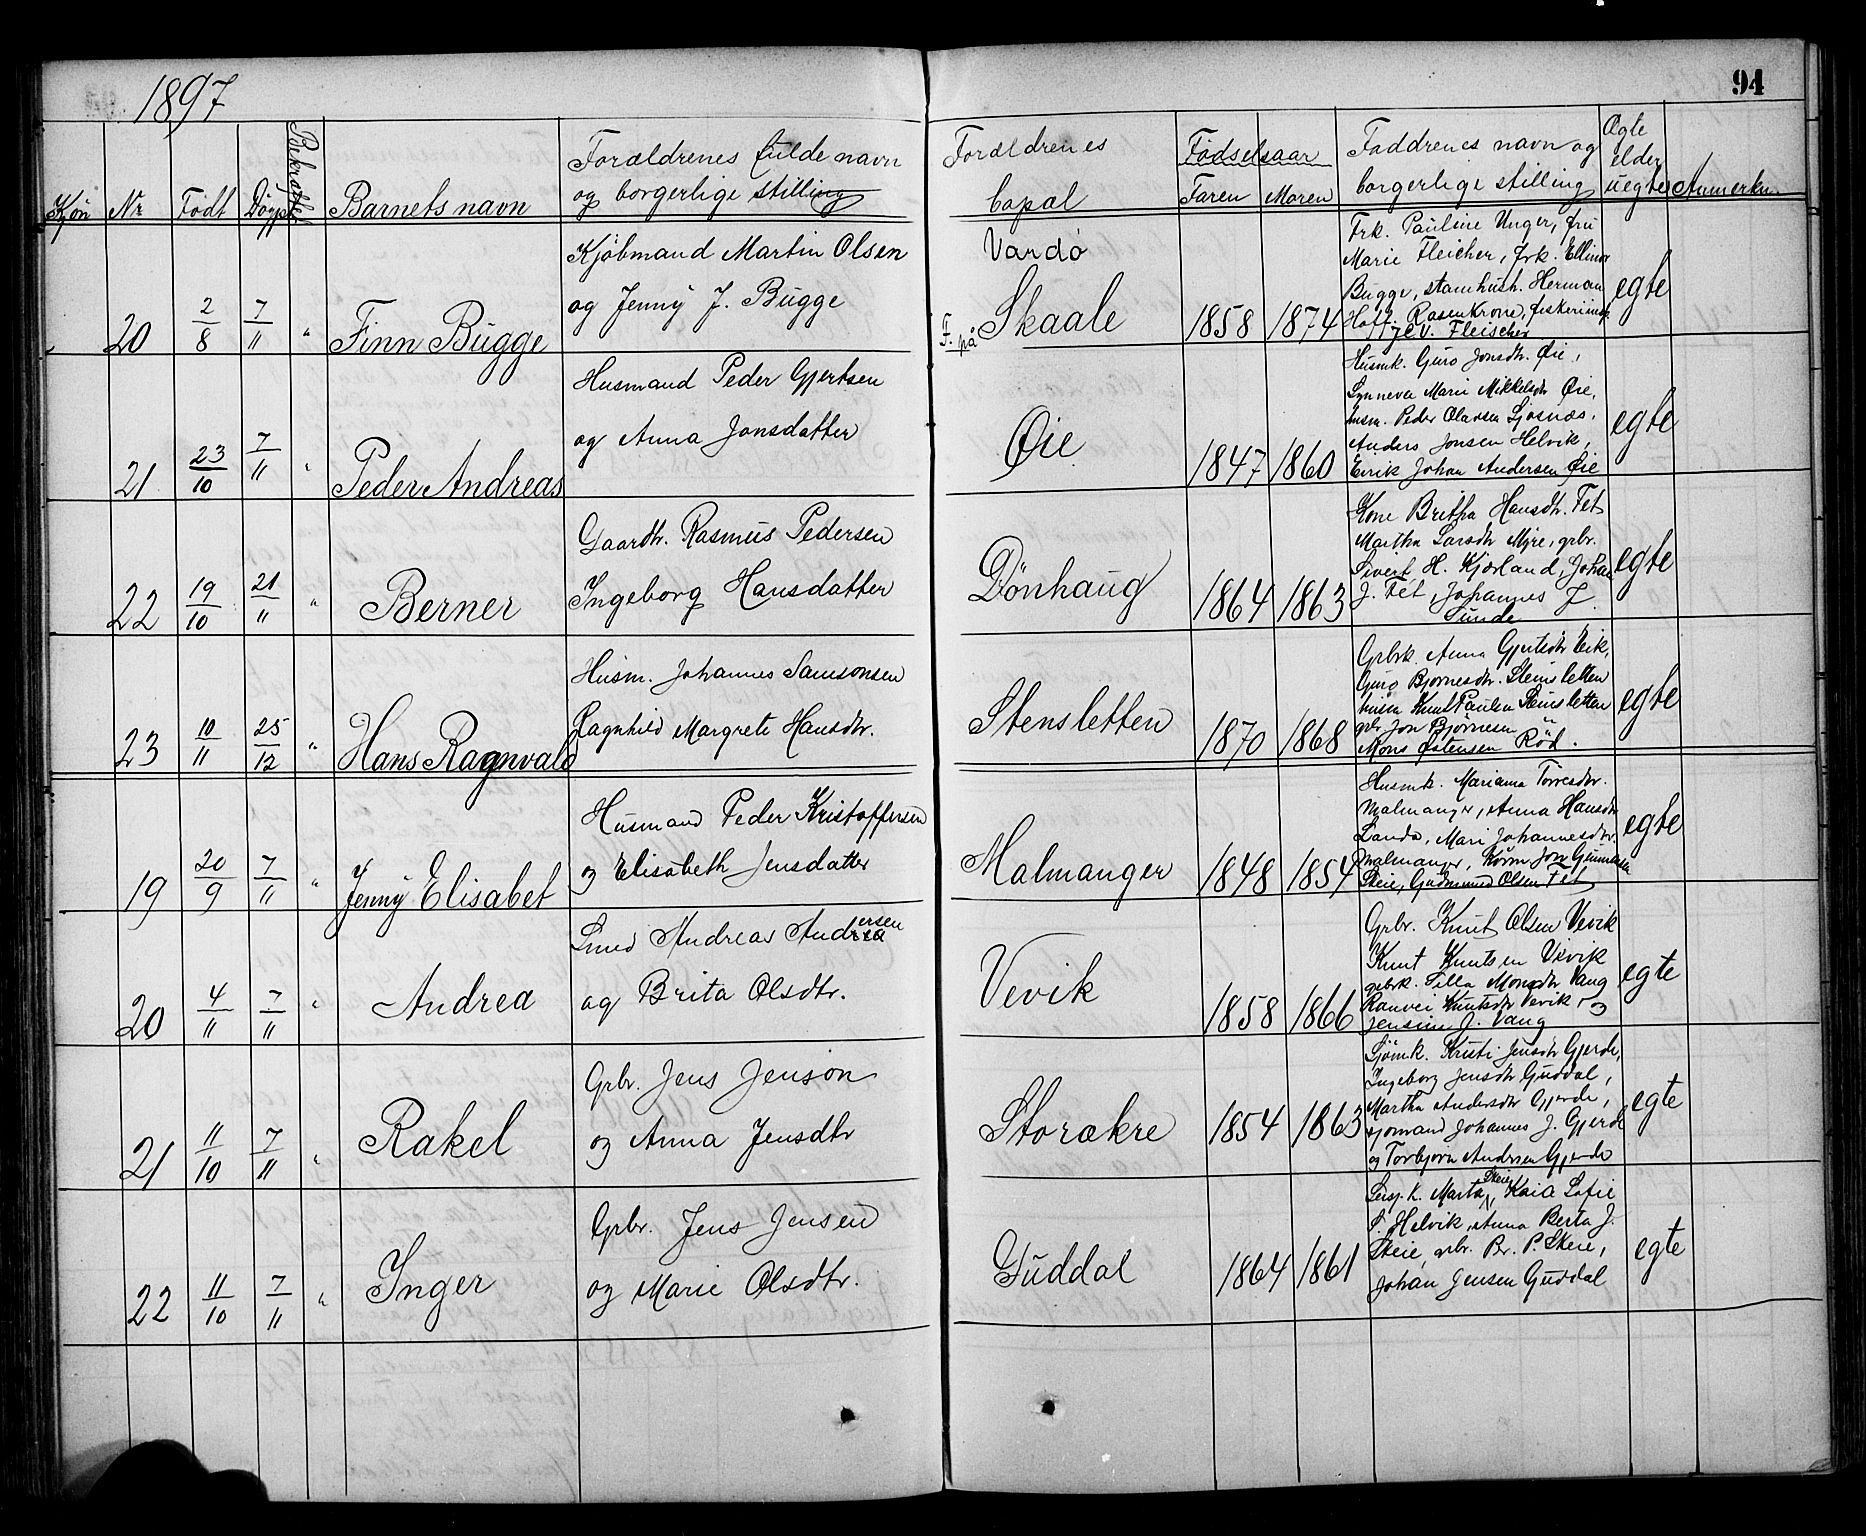 1897
94
Kjön Nr Födt Döypt Bekræftet Barnets navn
Forældrenes fulde navn
og borgerlige stilling
Forældrenes
bopæl
Födselsaar
Faren Moren
Faddrenes navn og
borgerlige stilling
Ægte
eller
uegte
Anmerkn.
20 2/8 7/11 " Finn Bugge
Kjøbmand Martin Olsen
og Jenny J. Bugge
Vardø
F. på Skaale
1858 1874
Frk. Pauline Unger, fru
Marie Fleicher, frk. Ellina
Bugge, stamhush. Herman
Hoff. Rosenkrone, fiskeriinsp.
J.C.V. Fleischer
egte
21 23/10 7/11 " Peder Andreas
Husmand Peder Gjertsen
og Anna Jonsdatter
Øie
1847 1860
Husmk. Guro Jonsdtr. Øie,
Synneva Marie Mikkelsdtr Øie,
husm. Peder Olavsen Sjosnæs.
Anders Jonsen Helvik,
Eirik Johan Andersen Øie
egte
22 19/10 21/11 " Berner
Gaardbr. Rasmus Pedersen
Ingeborg Hansdatter
Dönhaug
1864 1863
Kone Britha Hansdtr. Fet
Martha Larsdtr Myre, grbr.
Sivert H. Kjærland, Johan
J. Fet, Johannes J.
Sunde
egte
23 10/11 25/12 " Hans Ragnvald
Husm. Johannes Samsonsen
Ragnhild Margrete Hansdtr.
Stensletten
1870 1868
Grbrk. Anna Gjertsdtr Eik,
Guro Bjornesdtr. Steinsletten
husm Knut Paulsen Steinsletten
grbr Jon Bjørnesen "
Mons Østensen Röd.
egte
19 20/9 7/11 " Jenny Elisabet
Husmand Peder Kristoffersen
og Elisabeth Jensdatter
Malmanger
1848 1854
Husmk. Marianna Torresdtr.
Malmanger, Anna Hansdtr
Landa, Mari Johannesdtr.
Malmanger, Husm Jon Gunnarsen
Skeie, Gudmund Olsen Fet
egte
20 4/11 7/11 " Andrea
Smed Andreas Andersen
og Brita Olsdtr.
Vevik
1858 1866
Grbr. Knut Olsen Vevik
Knut Knutsen Vevik
grbrk. Silla Monsdtr Vang
Ranvei Knutsdtr Vevik, og
Jensine J. Vang
egte
21 11/10 7/11 " Rakel
Grbr. Jens Jenson
og Anna Jensdtr
Storækre
1854 1863
Sjömk. Kristi Jensdtr Gjerde,
Ingeborg Jensdtr Guddal,
Martha Andersdtr Gjerde,
sjomand Johannes J. Gjerde
og Torbjorn Andersen Gjerde
egte
22 11/10 7/11 " Inger
Grbr. Jens Jensen
og Marie Olsdtr.
Guddal
1864 1861
k. Marta Skeie, Kaia Sofie
S. Helvik, Anna Berta J.
Skeie, grbr. Br. P. Skeie,
Johan Jensen Guddal
egte